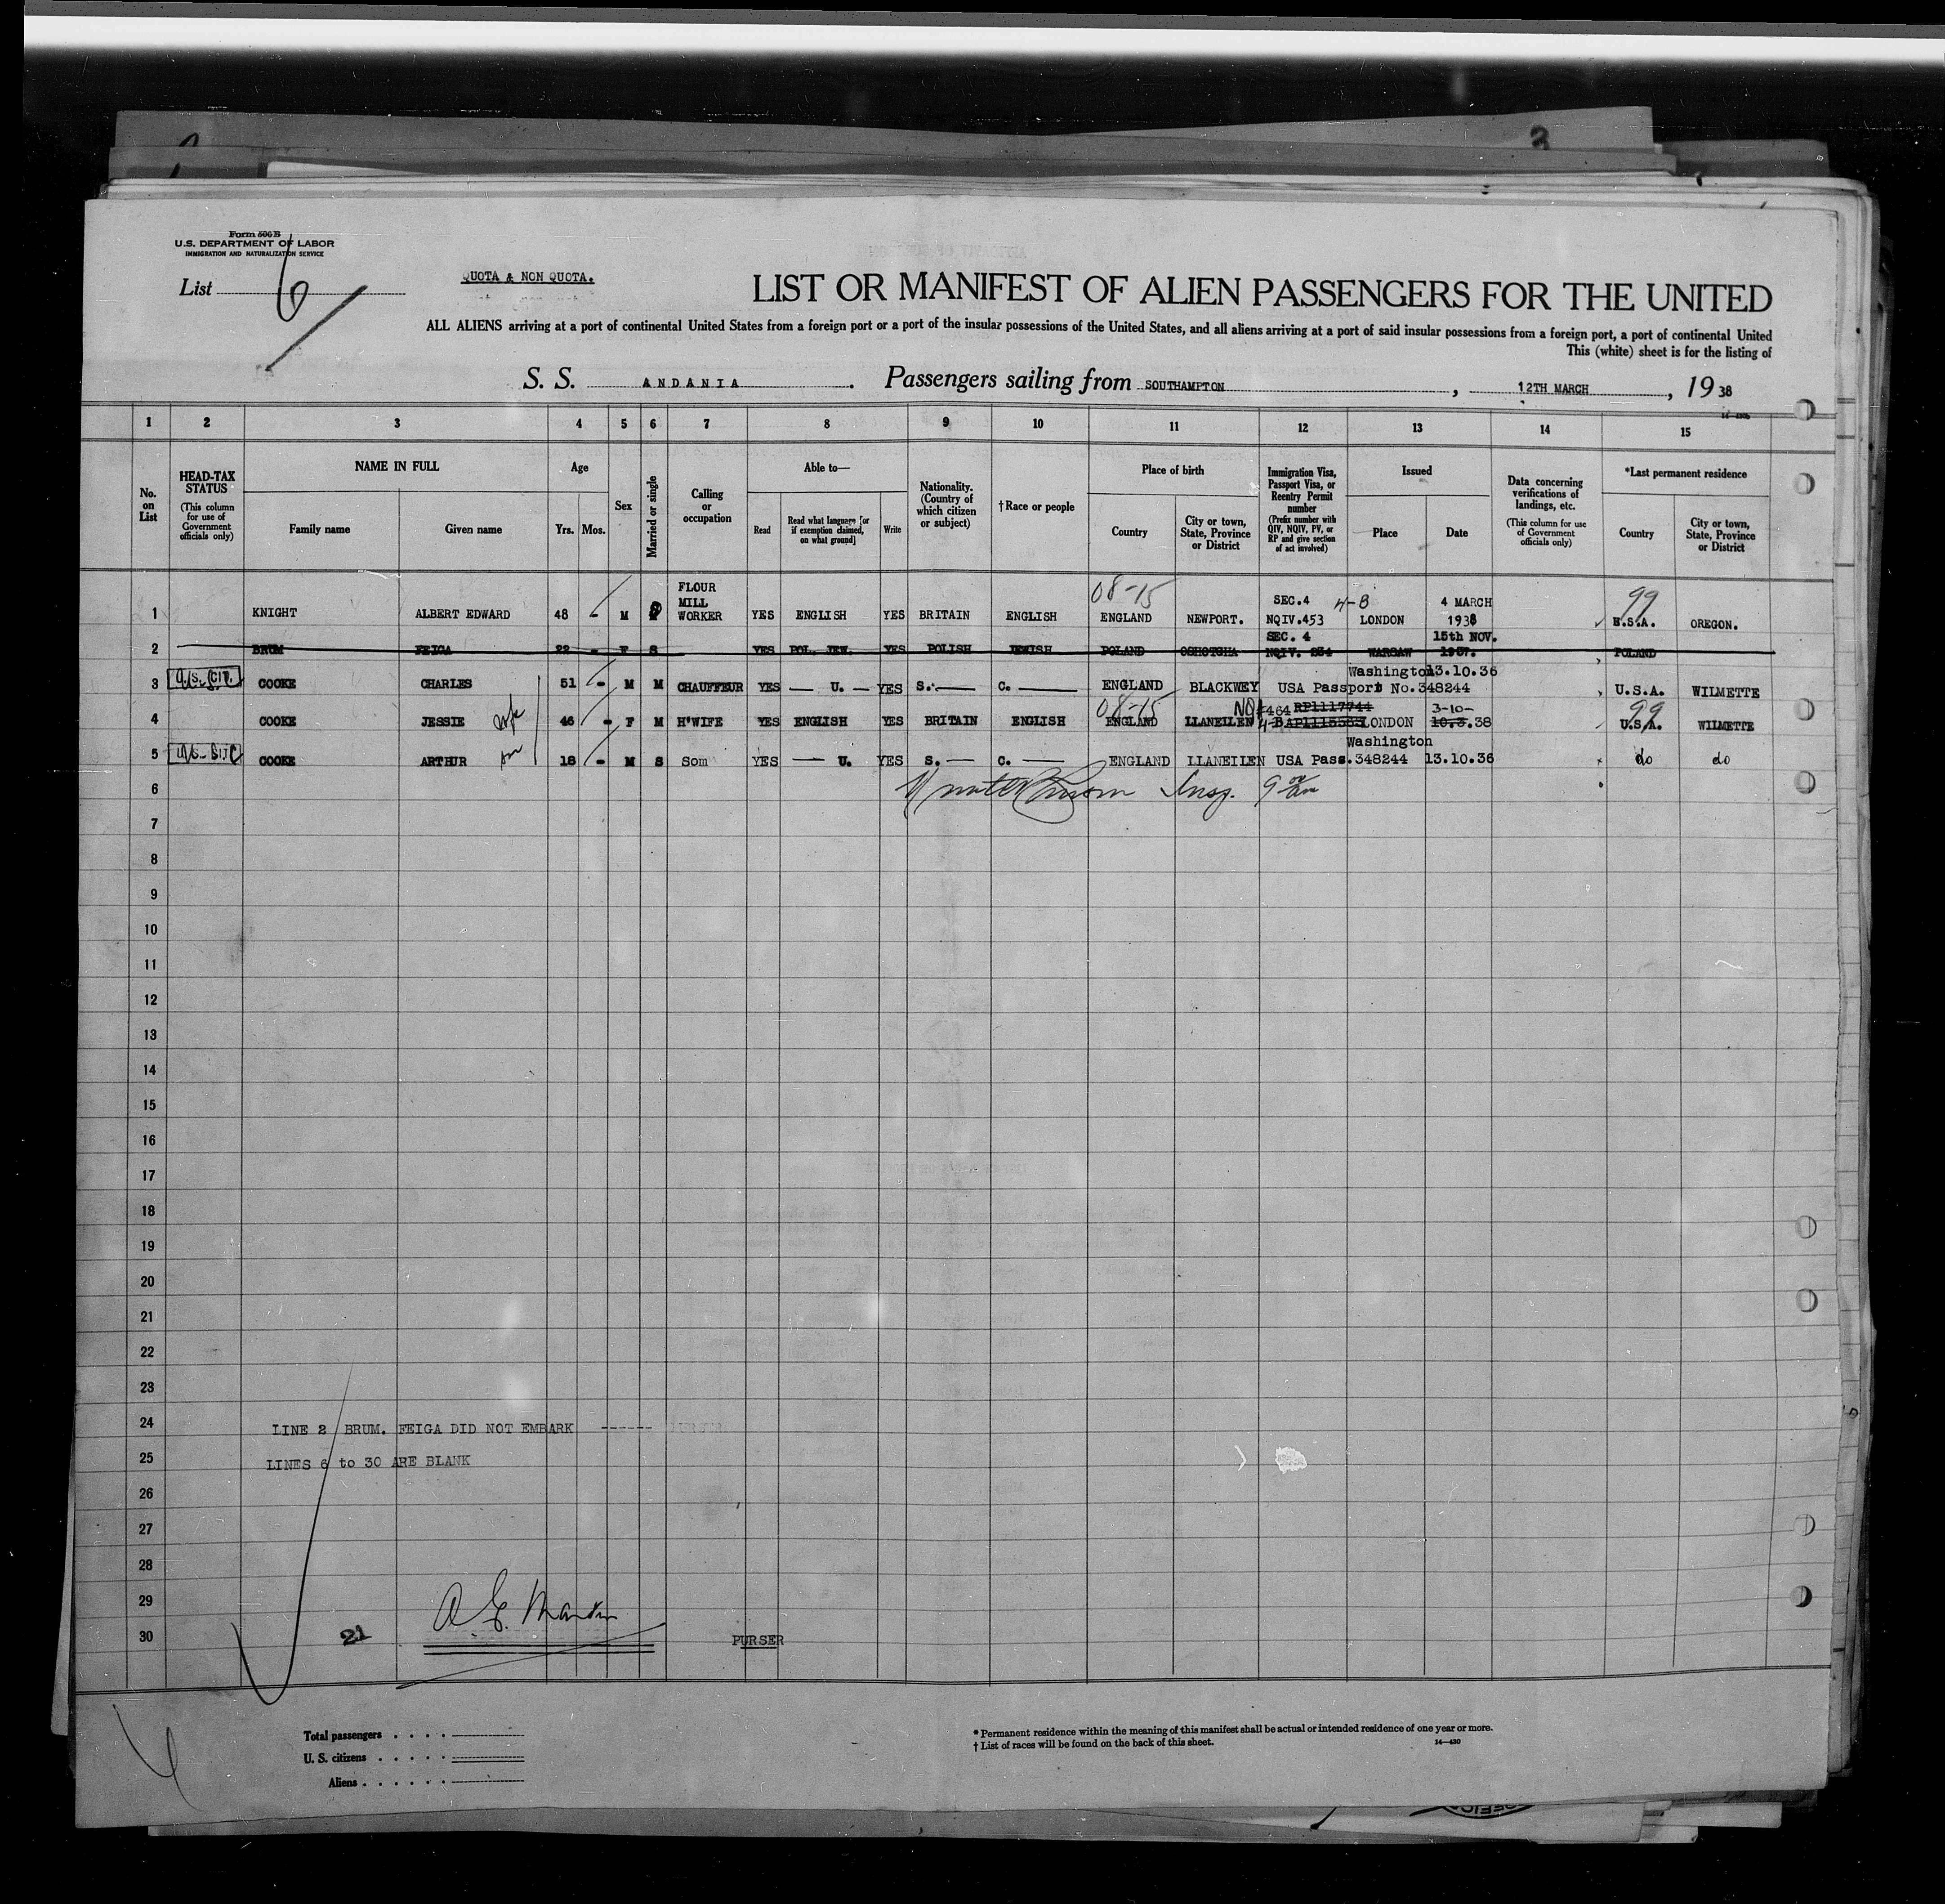 3
Form 500 B
U.S. DEPARTMENT OF LABOR
IMMIGRATION AND NATURALIZATION SERVICE
List 6
QUOTA & NON QUOTA.
LIST OR MANIFEST OF ALIEN PASSENGERS FOR THE UNITED
ALL ALIENS arriving at a port of continental United States from a foreign port or a port of the insular possessions of the United States, and all aliens arriving at a port of said insular possessions from a foreign port, a port of continental United
This (white) sheet is for the listing of
S. S. ANDANIA. Passengers sailing from SOUTHAMPTON, 12TH MARCH, 19 38
1 2 3 4 5 6 7 8 9 10 11 12 13 14 15
No. on List
HEAD-TAX STATUS (This column for use of Government officials only)
NAME IN FULL
Family name Given name
Age
Yrs. Mos.
Sex
Married or single
Calling or occupation
Able to—
Read Read what language [or if exemption claimed, on what ground] Write
Nationality. (Country of which citizen or subject)
†Race or people
Place of birth
Country City or town, State, Province or District
Immigration Visa, Passport Visa, or Reentry Permit number (Prefix number with QIV, NQIV, PV, or RP and give section of act involved)
Issued
Place Date
Data concerning verifications of landings, etc. (This column for use of Government officials only)
*Last permanent residence
Country City or town, State, Province or District
08-15 99
1 KNIGHT ALBERT EDWARD 48 - M FLOUR MILL WORKER YES ENGLISH YES BRITAIN ENGLISH ENGLAND NEWPORT. SEC.4 NQIV.453 4-B LONDON 4 MARCH 1938 U.S.A. OREGON.
2 BRUM FEIGA 22 - F S YES POL. JEW. YES POLISH JEWISH POLAND SEC. 4 NQIV. 234 WARSAW 15th NOV. 1937. POLAND
3 U.S. CIT. COOKE CHARLES 51 - M M CHAUFFEUR YES — U. — YES S. — C. — ENGLAND BLACKWEY USA Passport No.348244 Washington 13.10.36 U.S.A. WILMETTE
08-15 99
4 COOKE JESSIE wife 46 - F M H'WIFE YES ENGLISH YES BRITAIN ENGLISH ENGLAND LLANEILEN 464 RP1117744 4-B LONDON 3-10- 10.3.38 U.S.A. WILMETTE
5 U.S. CIT COOKE ARTHUR son 18 - M S Som YES — U. YES S. — C. — ENGLAND LLANEILEN USA Pass.348244 Washington 13.10.36 do do
6 Insp.
7
8
9
10
11
12
13
14
15
16
17
18
19
20
21
22
23
24 LINE 2 BRUM. FEIGA DID NOT EMBARK ------
25 LINES 6 to 30 ARE BLANK
26
27
28
29 A E. Martin
30 21 PURSER
Total passengers . . . .
U. S. citizens . . . . .
Aliens . . . . . .
* Permanent residence within the meaning of this manifest shall be actual or intended residence of one year or more.
† List of races will be found on the back of this sheet. 14—430